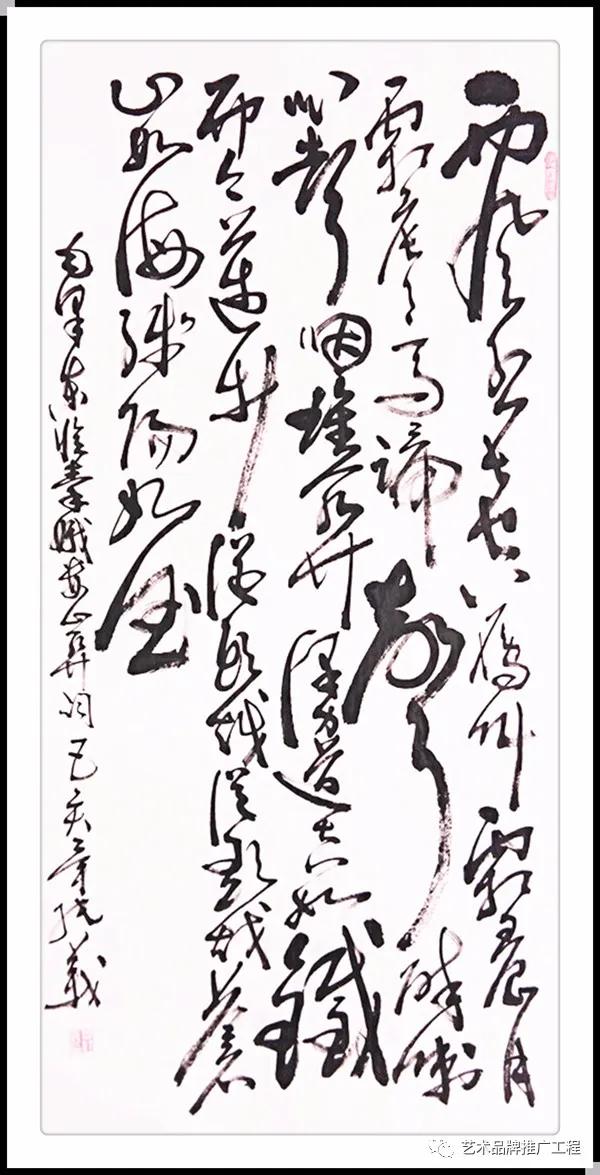 西风烈长空雁叫霜晨月
霜晨月马蹄声碎喇
叭声咽雄关漫道真如铁
而今迈步从头越从头越苍
山如海残阳如血
毛泽东忆秦娥娄山关词己亥
艺术品牌推广工程